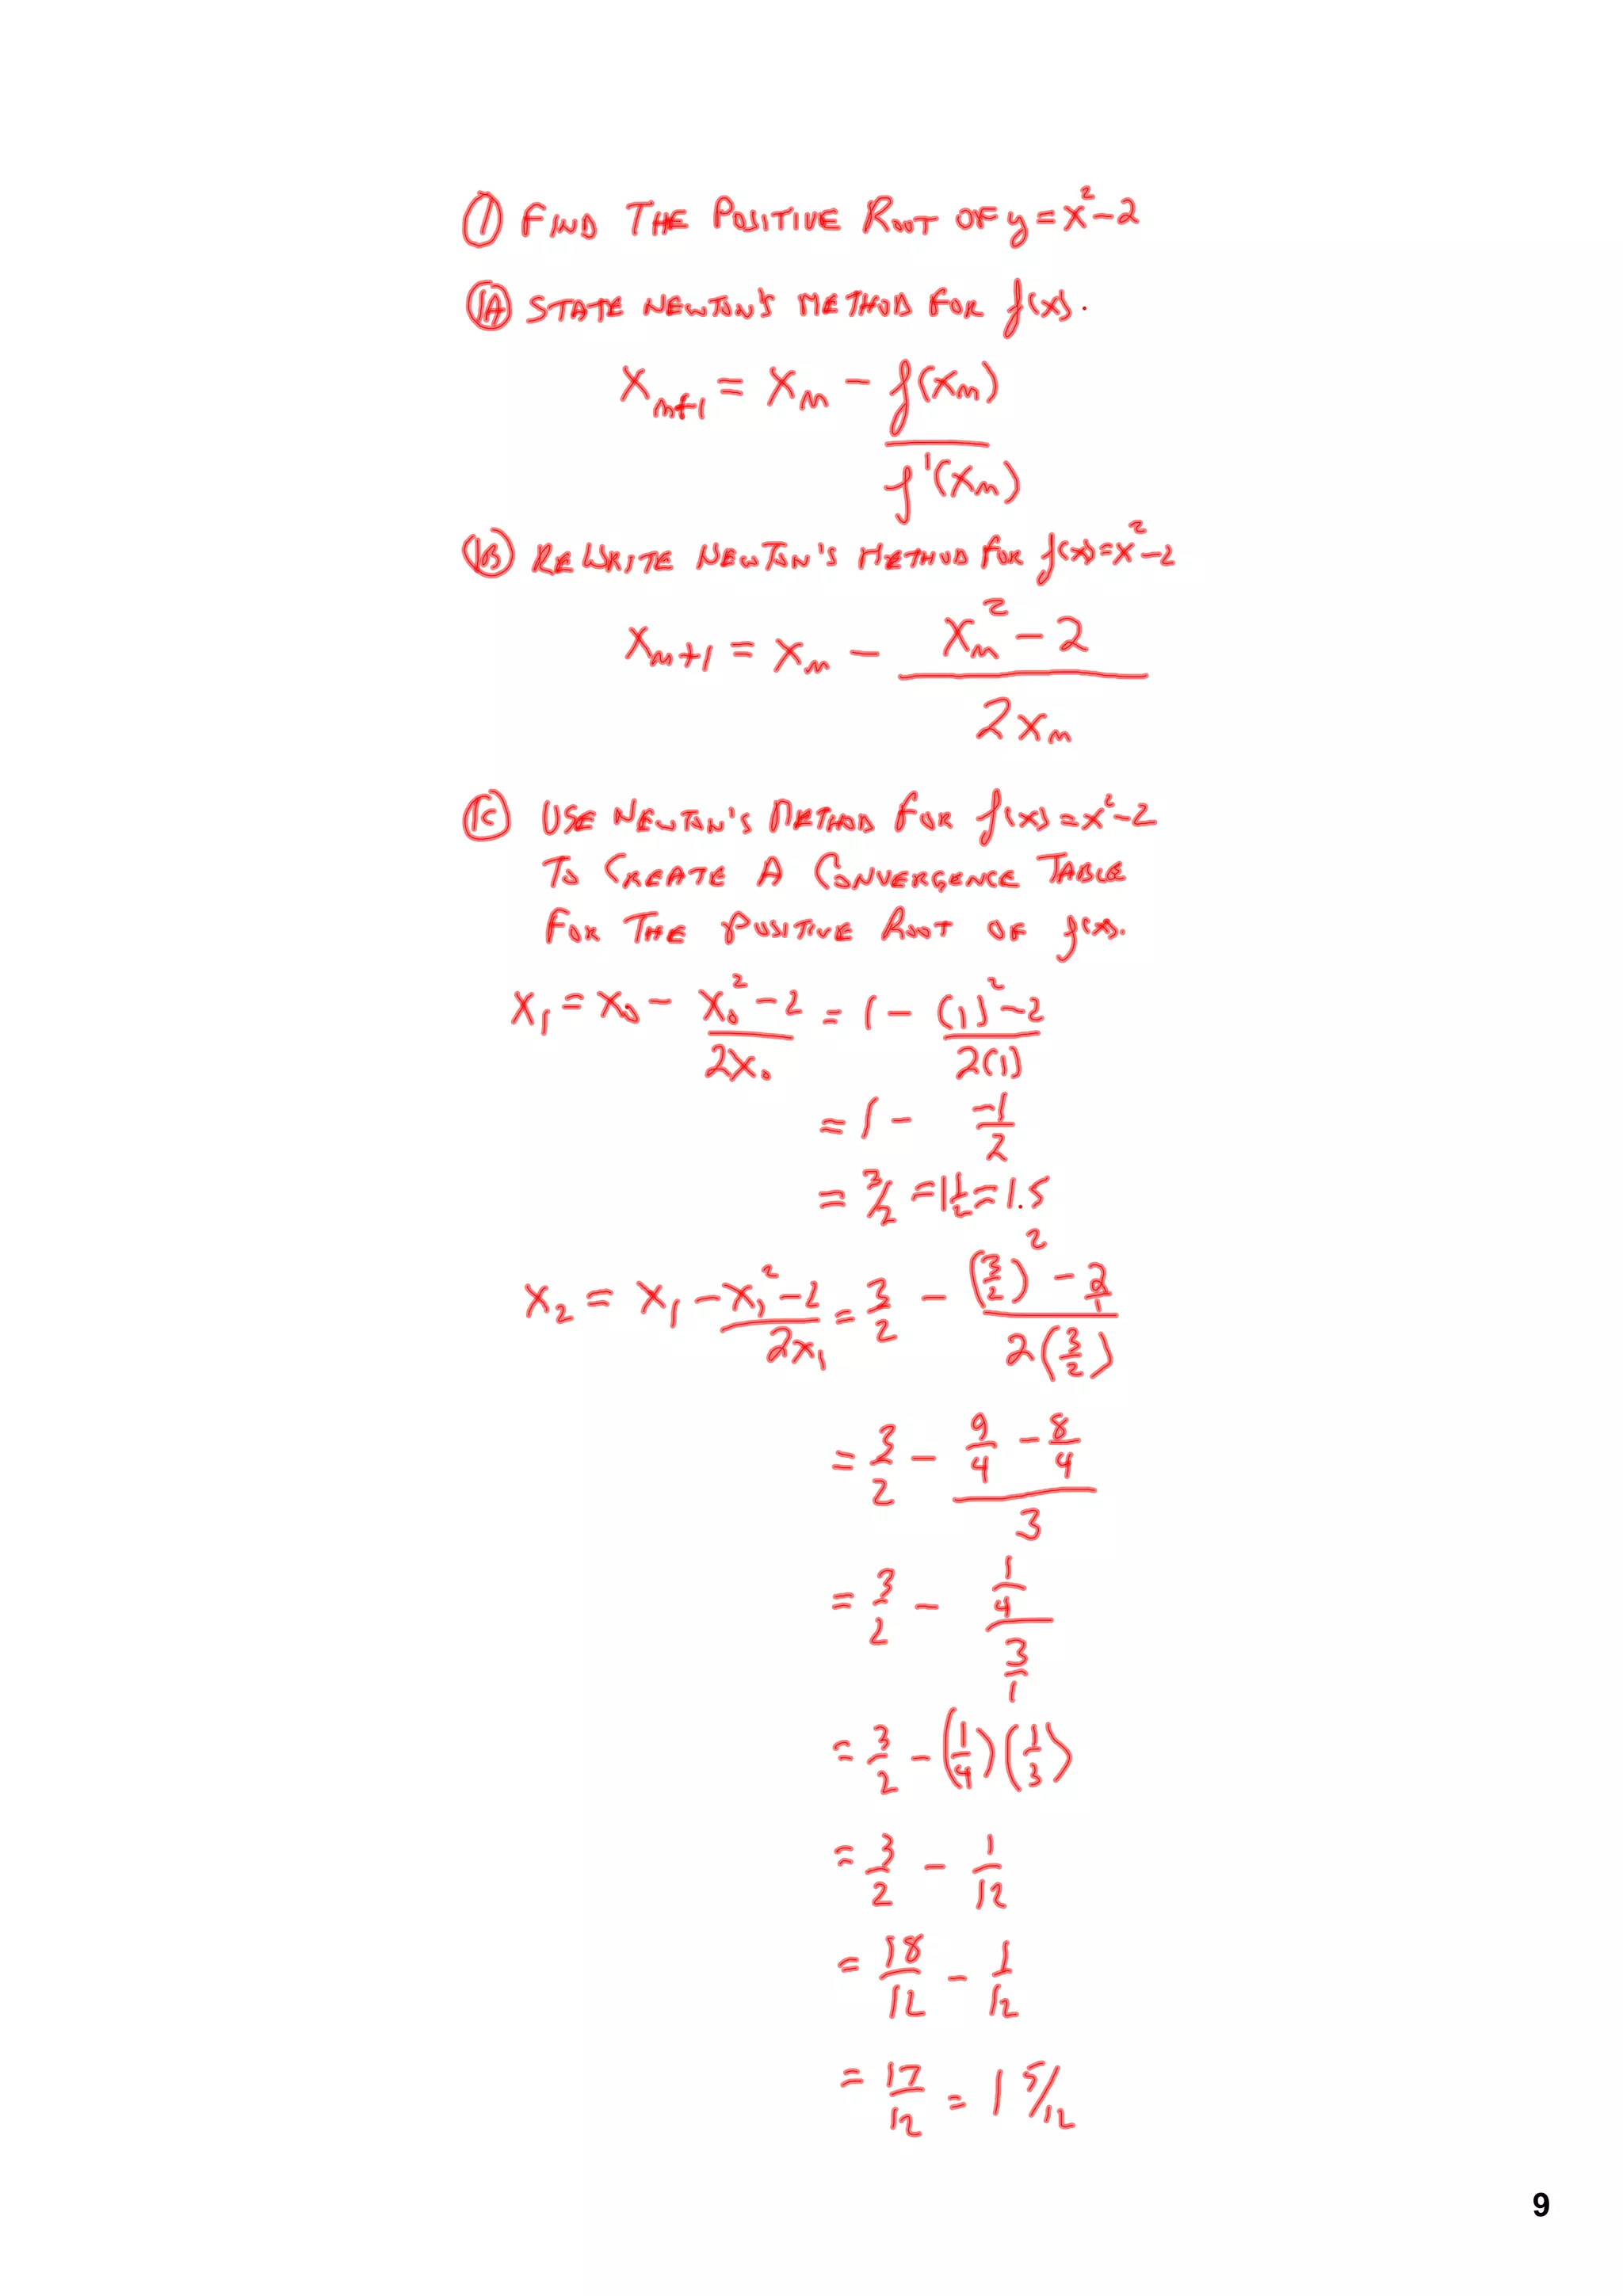 ① FIND THE POSITIVE ROOT OF y = x² - 2
1A STATE NEWTON'S METHOD FOR f(x).
xₙ₊₁ = xₙ - f(xₙ) / f'(xₙ)
1B REWRITE NEWTON'S METHOD FOR f(x) = x² - 2
xₙ₊₁ = xₙ - (xₙ² - 2) / 2xₙ
1C USE NEWTON'S METHOD FOR f(x) = x² - 2
TO CREATE A CONVERGENCE TABLE
FOR THE POSITIVE ROOT OF f(x).
x₁ = x₀ - (x₀² - 2) / 2x₀ = 1 - ((1)² - 2) / 2(1)
= 1 - -1/2
= 3/2 = 1 1/2 = 1.5
x₂ = x₁ - (x₁² - 2) / 2x₁ = 3/2 - ((3/2)² - 2/1) / 2(3/2)
= 3/2 - (9/4 - 8/4) / 3
= 3/2 - (1/4) / (3/1)
= 3/2 - (1/4)(1/3)
= 3/2 - 1/12
= 18/12 - 1/12
= 17/12 = 1 5/12
9